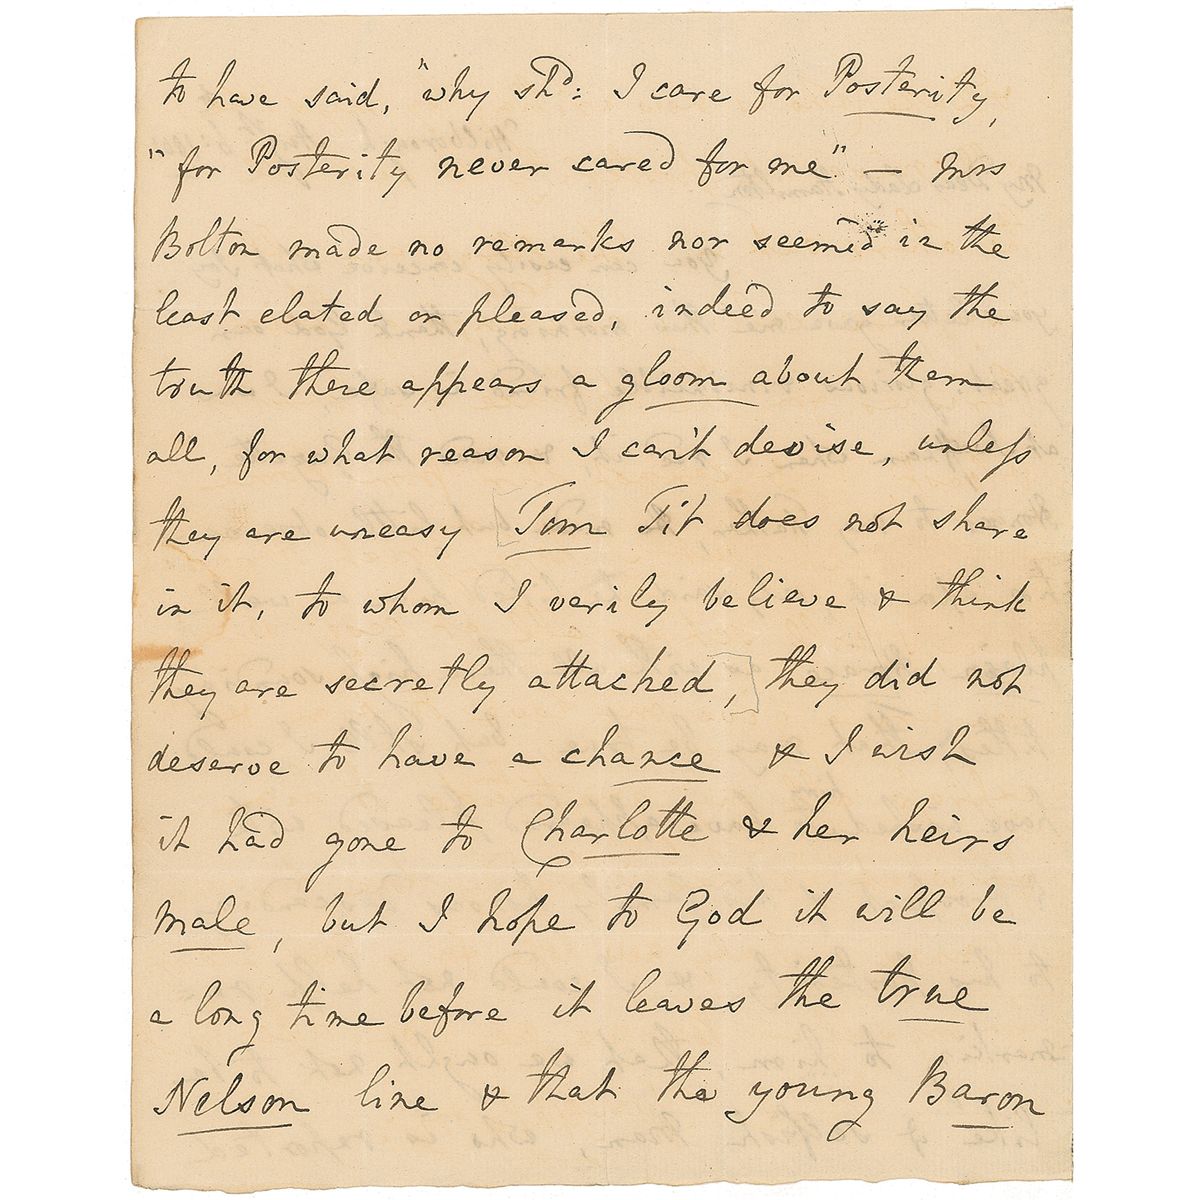 to have said, "why shd: I care for Posterity,
"for Posterity never cared for me" — Mrs
Bolton made no remarks nor seemed in the
least elated or pleased, indeed to say the
truth there appears a gloom about them
all, for what reason I can't devise, unless
they are uneasy Tom Tit does not share
in it, to whom I verily believe & think
they are secretly attached, they did not
deserve to have a chance & I wish
it had gone to Charlotte & her heirs
male, but I hope to God it will be
a long time before it leaves the true
Nelson line & that the young Baron